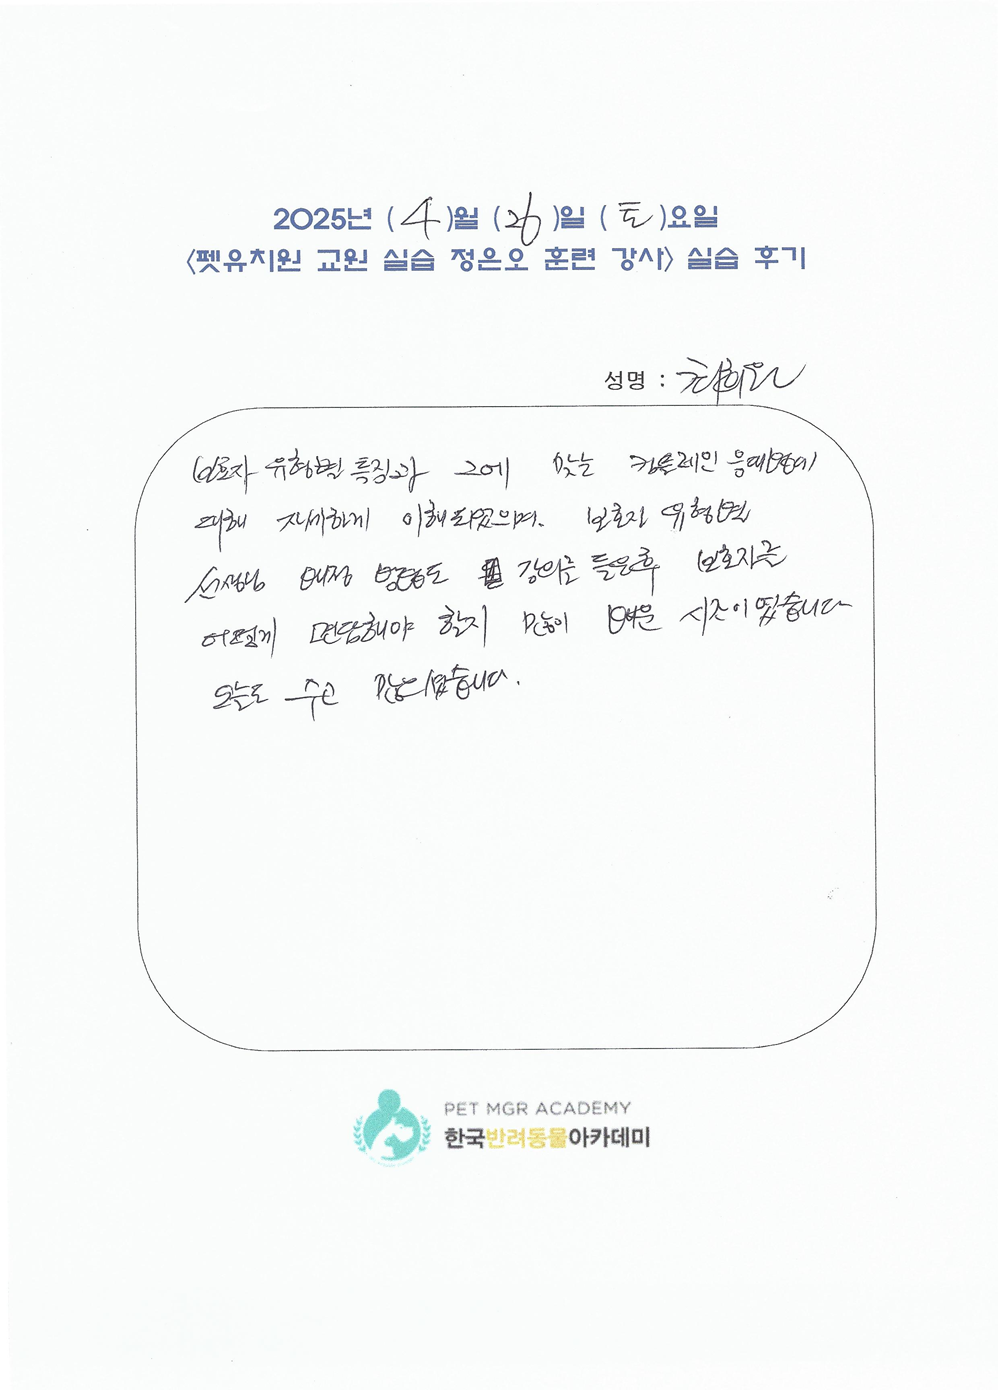 2025년 ( 4 )월 ( 26 )일 ( 토 )요일
<펫유치원 교원 실습 정은오 훈련 강사> 실습 후기
성명 : 최희원
보호자 유형별 특징과 그에 맞는 컴플레인 응대법에
대해 자세하게 이해되었으며. 보호자 유형별
선생님 배정 방법도 강의를 들은후 보호자를
어떻게 면담해야 할지 많이 배운 시간이 됐습니다
오늘도 수고 많으셨습니다.
PET MGR ACADEMY
한국반려동물아카데미